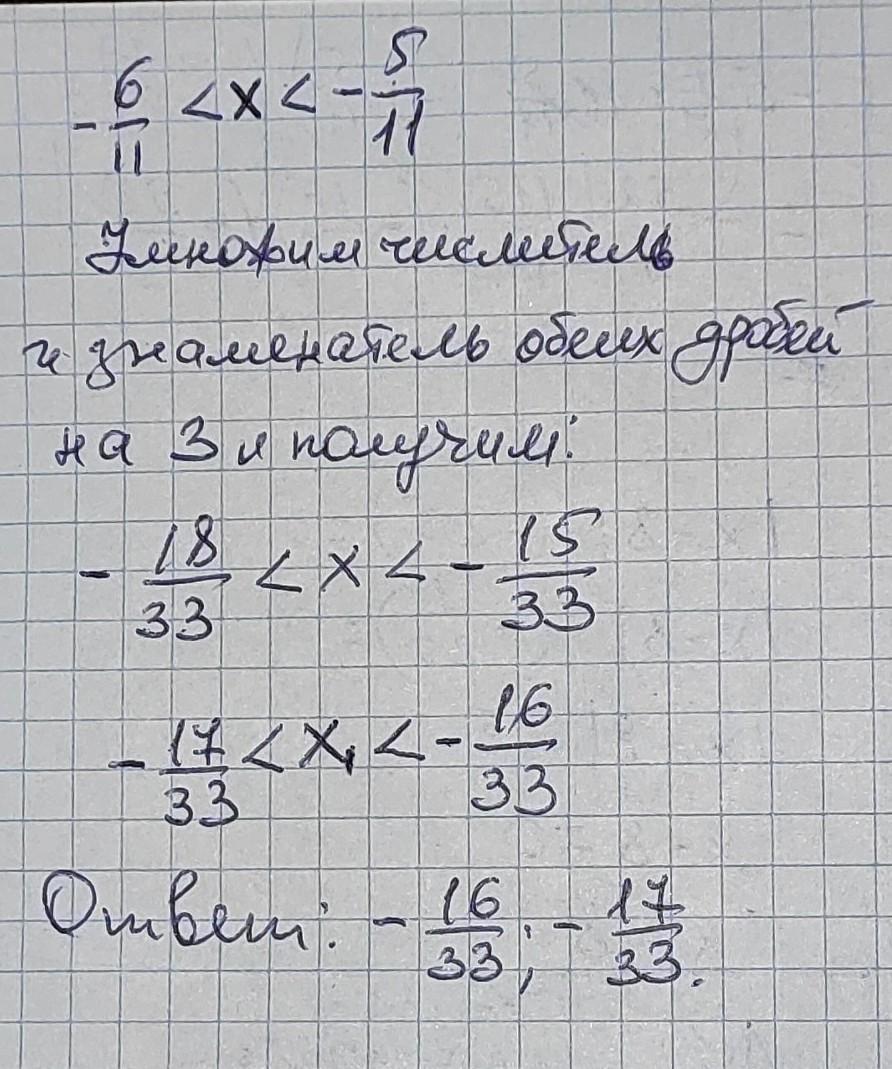 -6/11 < x < -5/11
Умножим числитель
и знаменатель обеих дробей
на 3 и получим:
-18/33 < x < -15/33
-17/33 < x, < -16/33
Ответ: -16/33; -17/33.